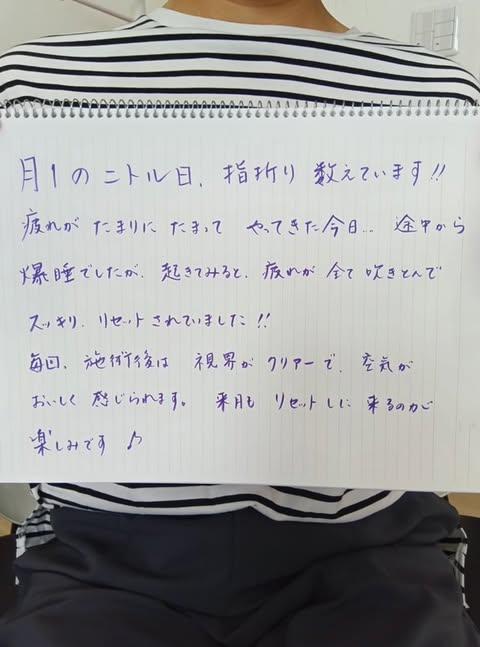 月1のニトル日、指折り数えています!!
疲れがたまりにたまってやってきた今日… 途中から
爆睡でしたが、起きてみると、疲れが全て吹きとんで
スッキリ、リセットされていました!!
毎回、施術後は視界がクリアーで、空気が
おいしく感じられます。来月もリセットしに来るのが
楽しみです♪